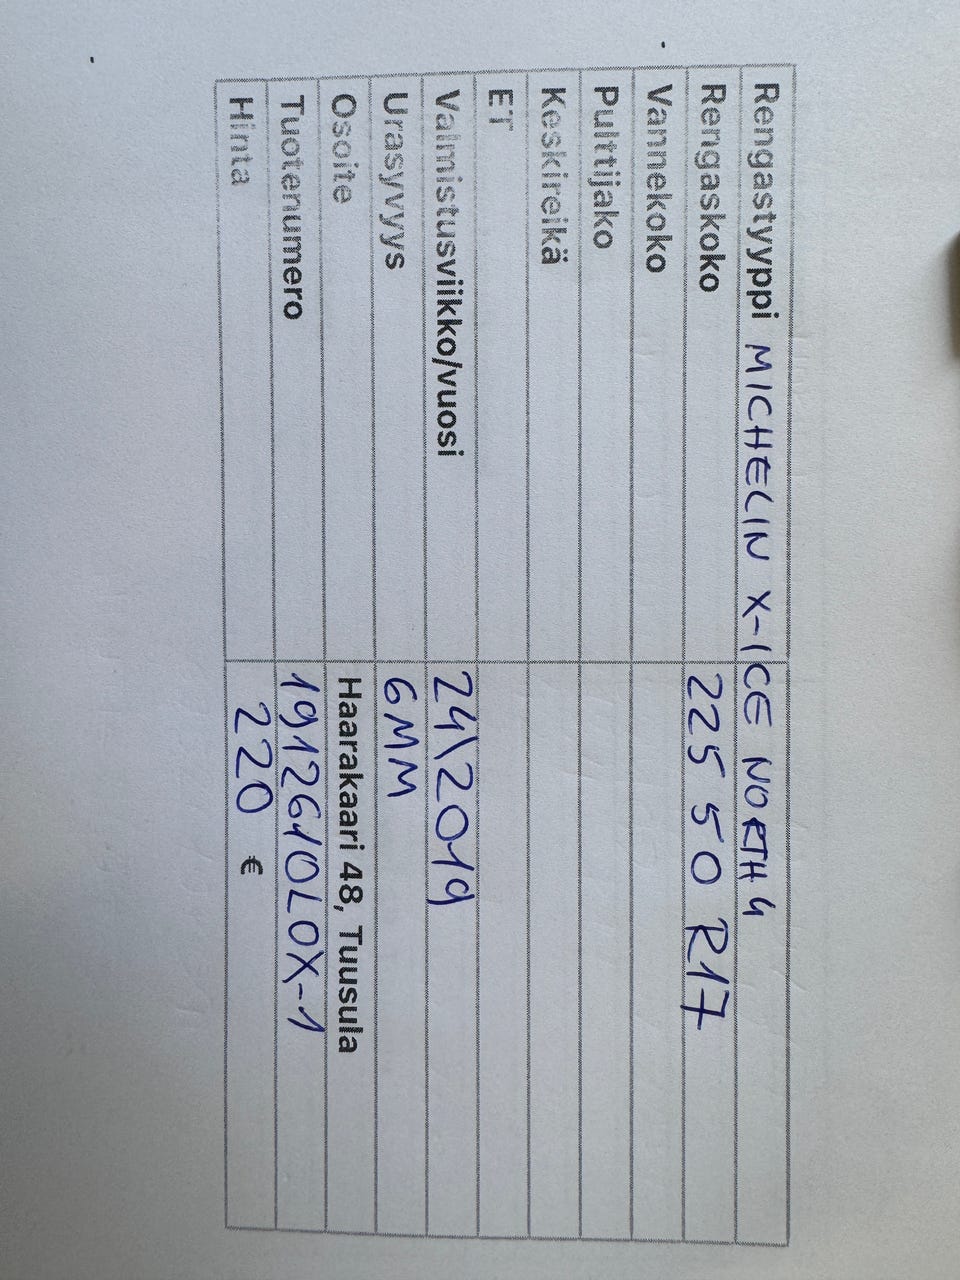 Rengastyyppi MICHELIN X-ICE NORTH 4
Rengaskoko 225 50 R17
Vannekoko
Pulttijako
Keskireikä
ET
Valmistusviikko/vuosi 24\2019
Urasyvyys 6MM
Osoite Haarakaari 48, Tuusula
Tuotenumero 1912610LOX-1
Hinta 220 €